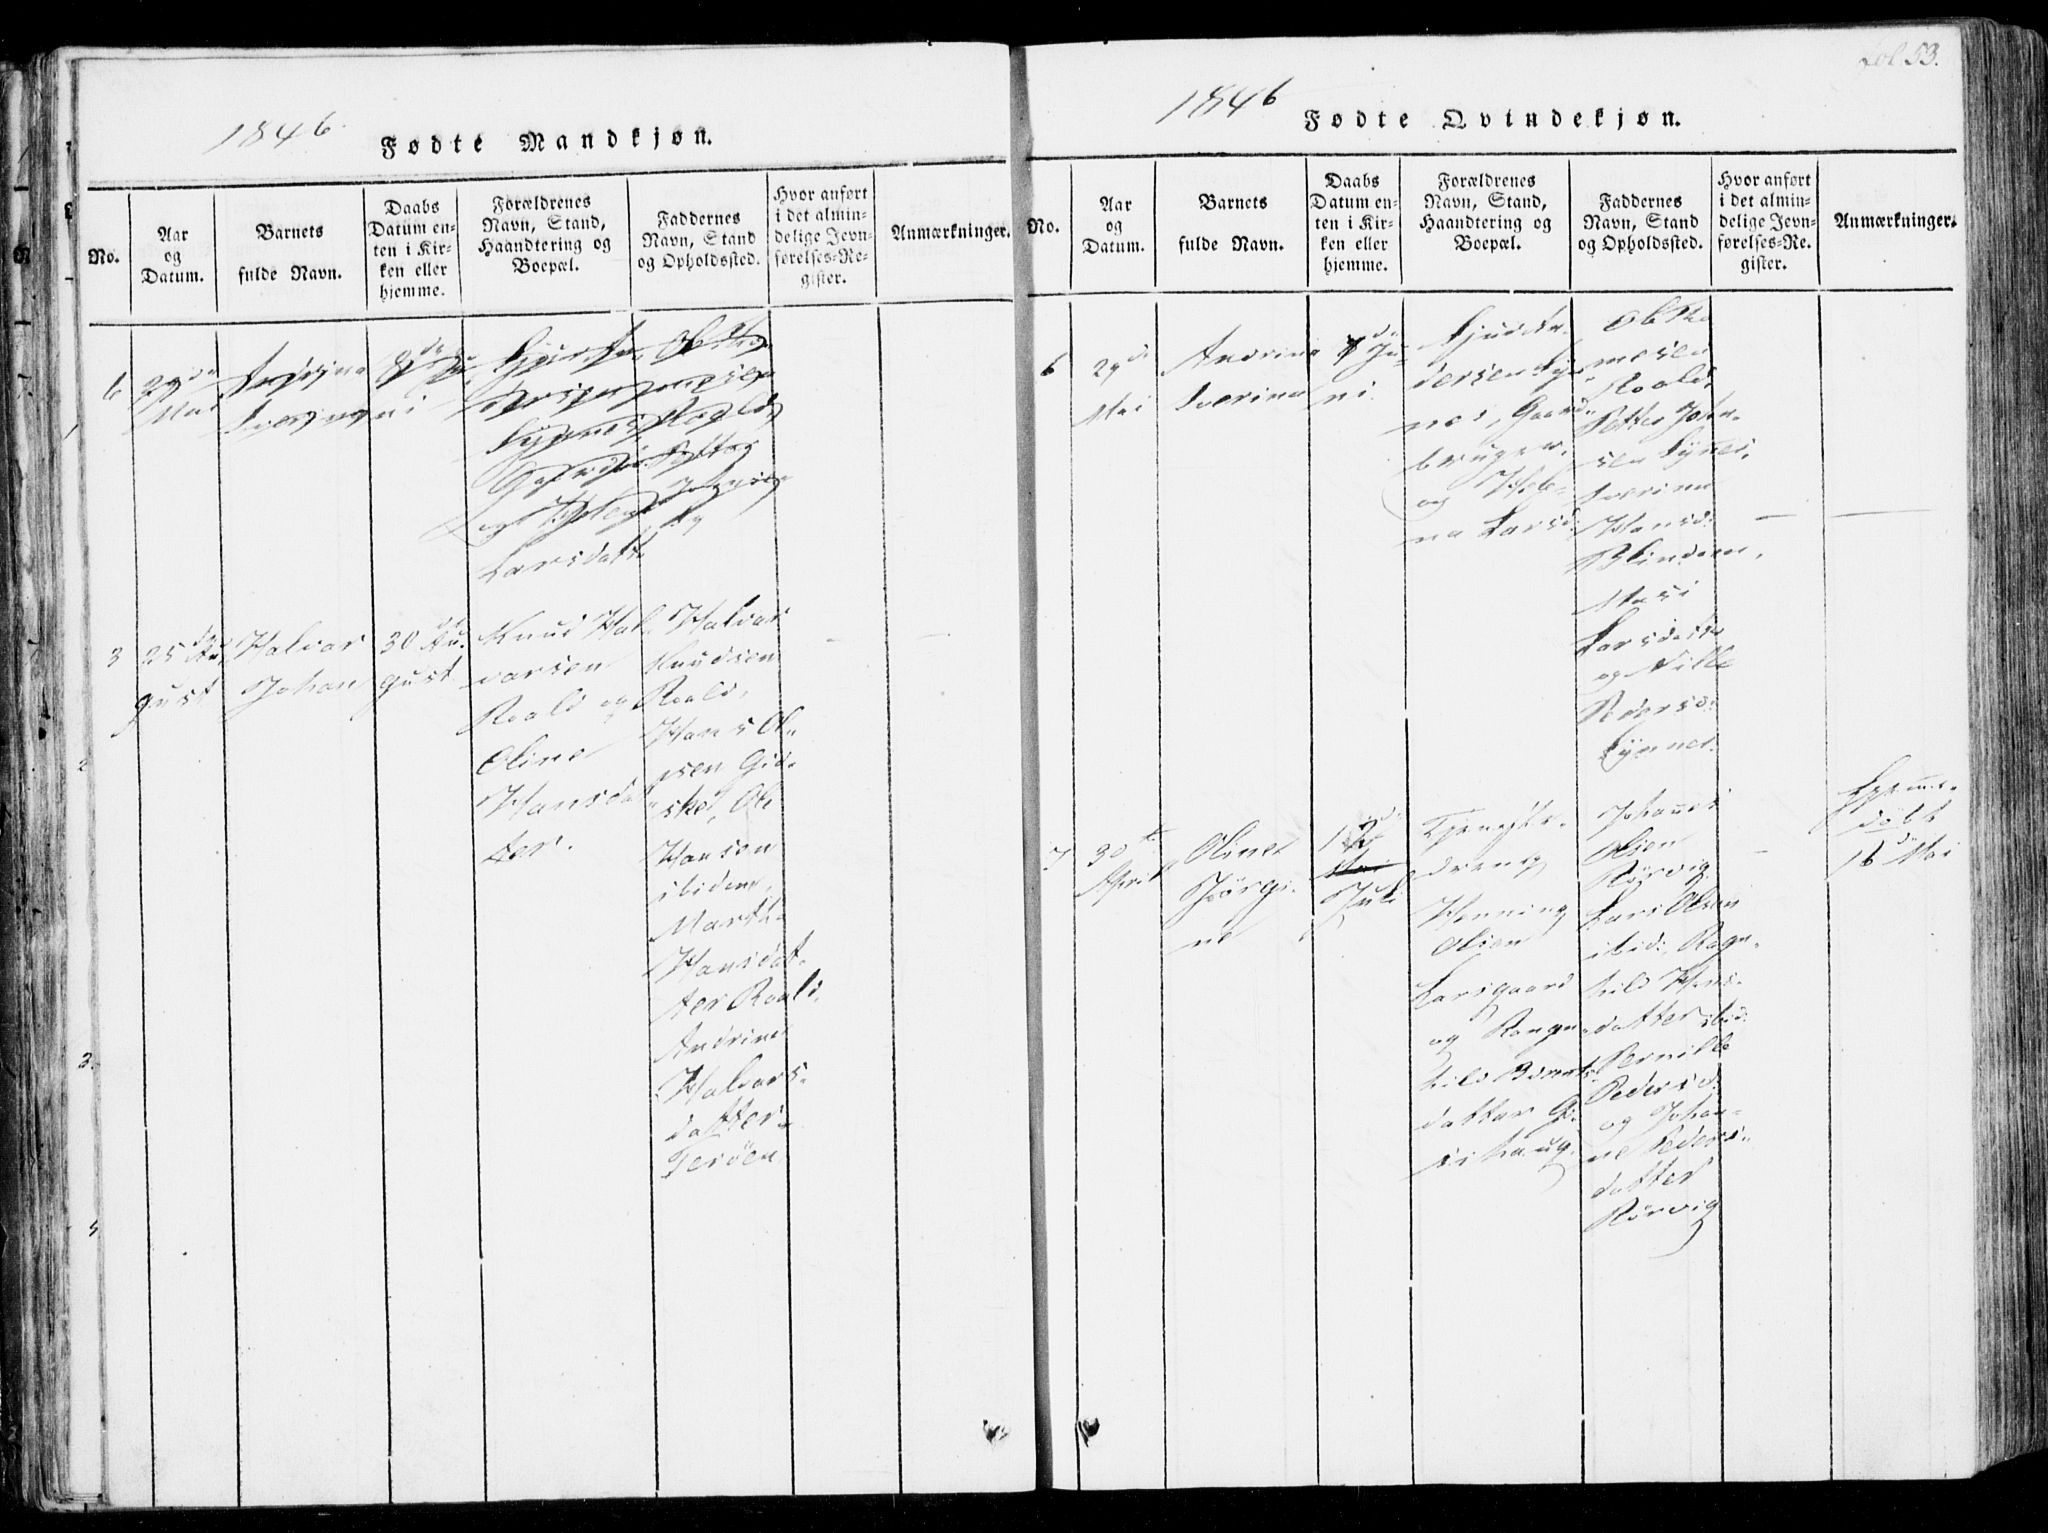 1846.
Fødte Mandkjøn.
No.
Aar
og
Datum.
Barnets
fulde Navn.
Daabs
Datum en-
ten i Kir-
ken eller
hjemme.
Forældrenes
Navn, Stand,
Haandtering og
Boepæl.
Faddernes
Navn, Stand
og Opholdssted.
Hvor anført
i det almin-
delige Jevn-
førelses-Re-
gister.
Anmærkninger.
6
29de
Mai
Larsdatt
3
25 Au
gust
Halvor
Johan
30 Au-
gust
Knud Hal-
vorsen
Roald og
Oline
Hansdat
ter.
Halvor
Knudsen
Roald,
Hans Ol-
sen Gid-
ske, Ole
Hansen
ibidem,
Marth
Hansdat-
ter Roald,
Andrine
Halvors-
datter
1846
fol 53.
Fødte Qvindekjøn.
No.
Aar
og
Datum.
Barnets
fulde Navn.
Daabs
Datum en-
ten i Kir-
ken eller
hjemme.
Forældrenes
Navn, Stand,
Haandtering og
Boepæl.
Faddernes
Navn, Stand
og Opholdssted.
Hvor anført
i det almin-
delige Jevn-
førelses-Re-
gister.
Anmærkninger.
6
29d
Mai
Andrine
Severine
7 Ju-
ni.
dersen
nes, Gaard-
bruger,
og Hele-
na Larsd.
Ole Tho-
mesen
Roald,
Petter Joha-
sen Synes,
Severine
Hansd:
Blindem,
Mari
Larsdatter
og Pille
Pedersd:
Synnes.
7
30te
April
Oline
Jørgi-
ne
12
Juli
Tjeneste-
dreng
Henning
Olsen
Larsgaard
og Rangn-
hild Bernts-
datter Gi-
sehaug.
Johannes
Olsen
Rørvig,
Lars Olsen
ibid:, Ragn-
hild Hans-
datter ibid:
Pernille
Pedersd:
og Johan-
ne Peders-
datter
Rørvig
Hjemme-
døbt
16d Mai